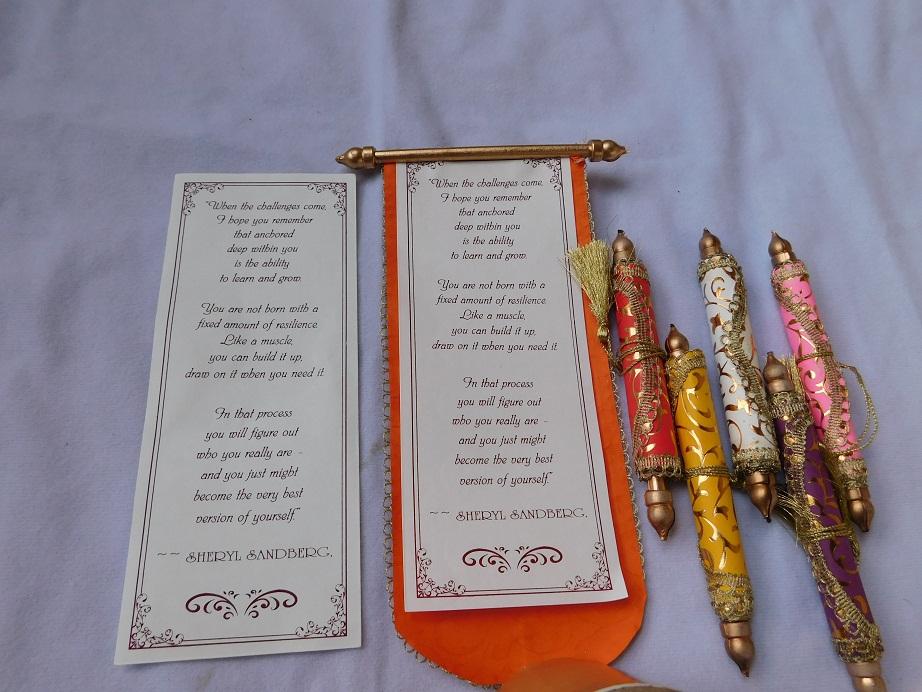 "When the challenges come,
I hope you remember
that anchored
deep within you
is the ability
to learn and grow.
You are not born with a
fixed amount of resilience.
Like a muscle,
you can build it up,
draw on it when you need it.
In that process
you will figure out
who you really are -
and you just might
become the very best
version of yourself."
~~ SHERYL SANDBERG.
"When the challenges come,
I hope you remember
that anchored
deep within you
is the ability
to learn and grow.
You are not born with a
fixed amount of resilience.
Like a muscle,
you can build it up,
draw on it when you need it.
In that process
you will figure out
who you really are -
and you just might
become the very best
version of yourself."
~~ SHERYL SANDBERG.